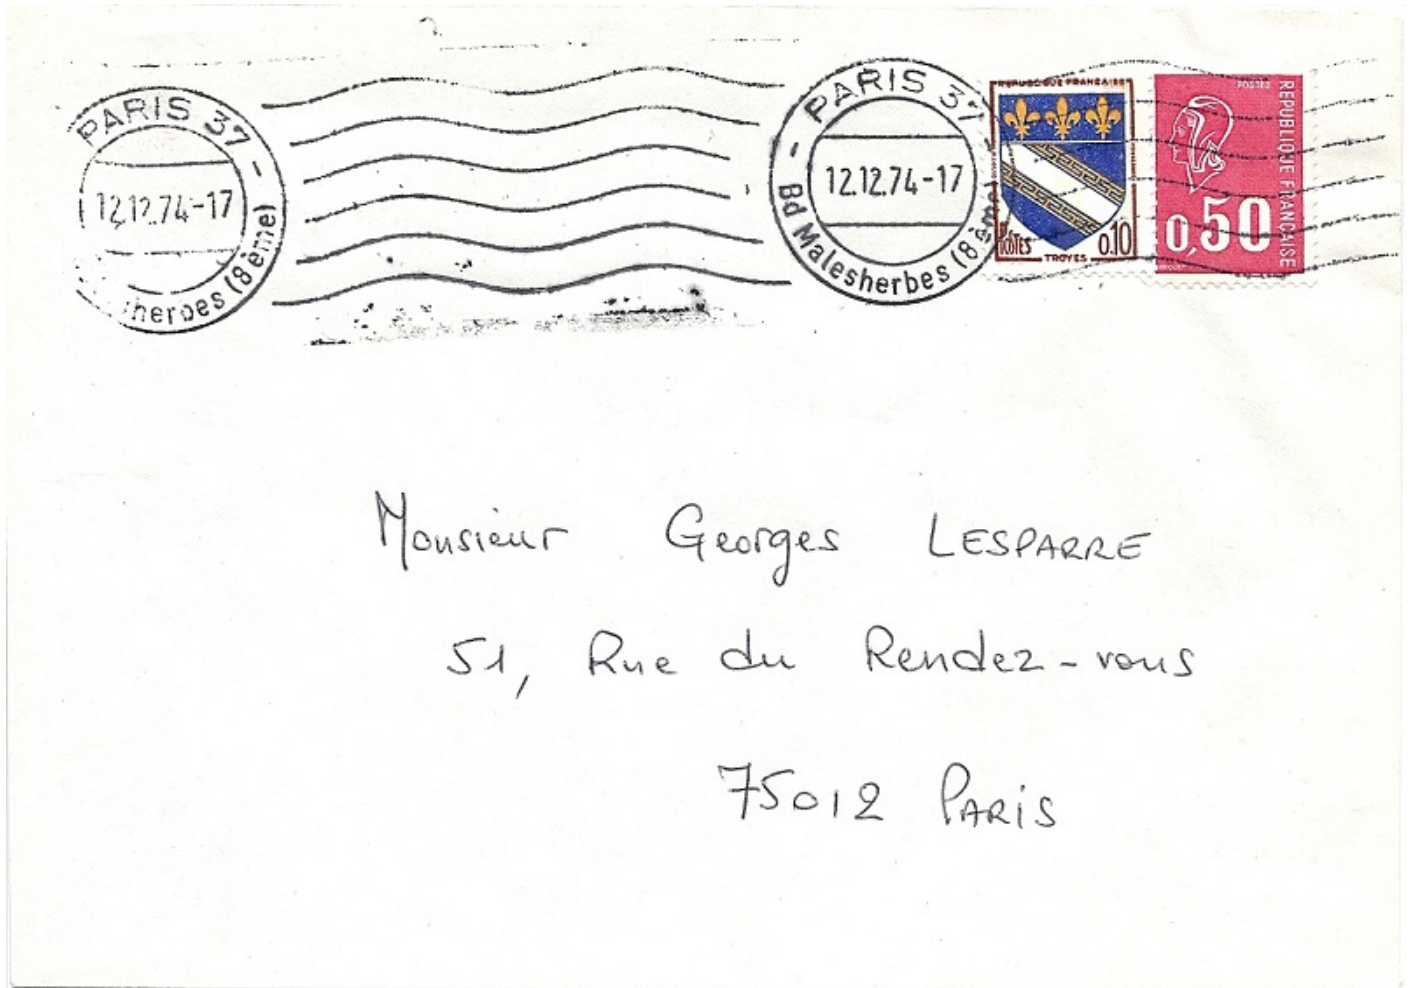 PARIS 37 -
12.12.74-17
herbes (8ème)
PARIS 37 -
12.12.74-17
Bd Malesherbes (8ème)
REPUBLIQUE FRANÇAISE
POSTES
0,10
TROYES
POSTES
REPUBLIQUE FRANÇAISE
0,50
Monsieur Georges LESPARRE
51, Rue du Rendez-vous
75012 PARIS